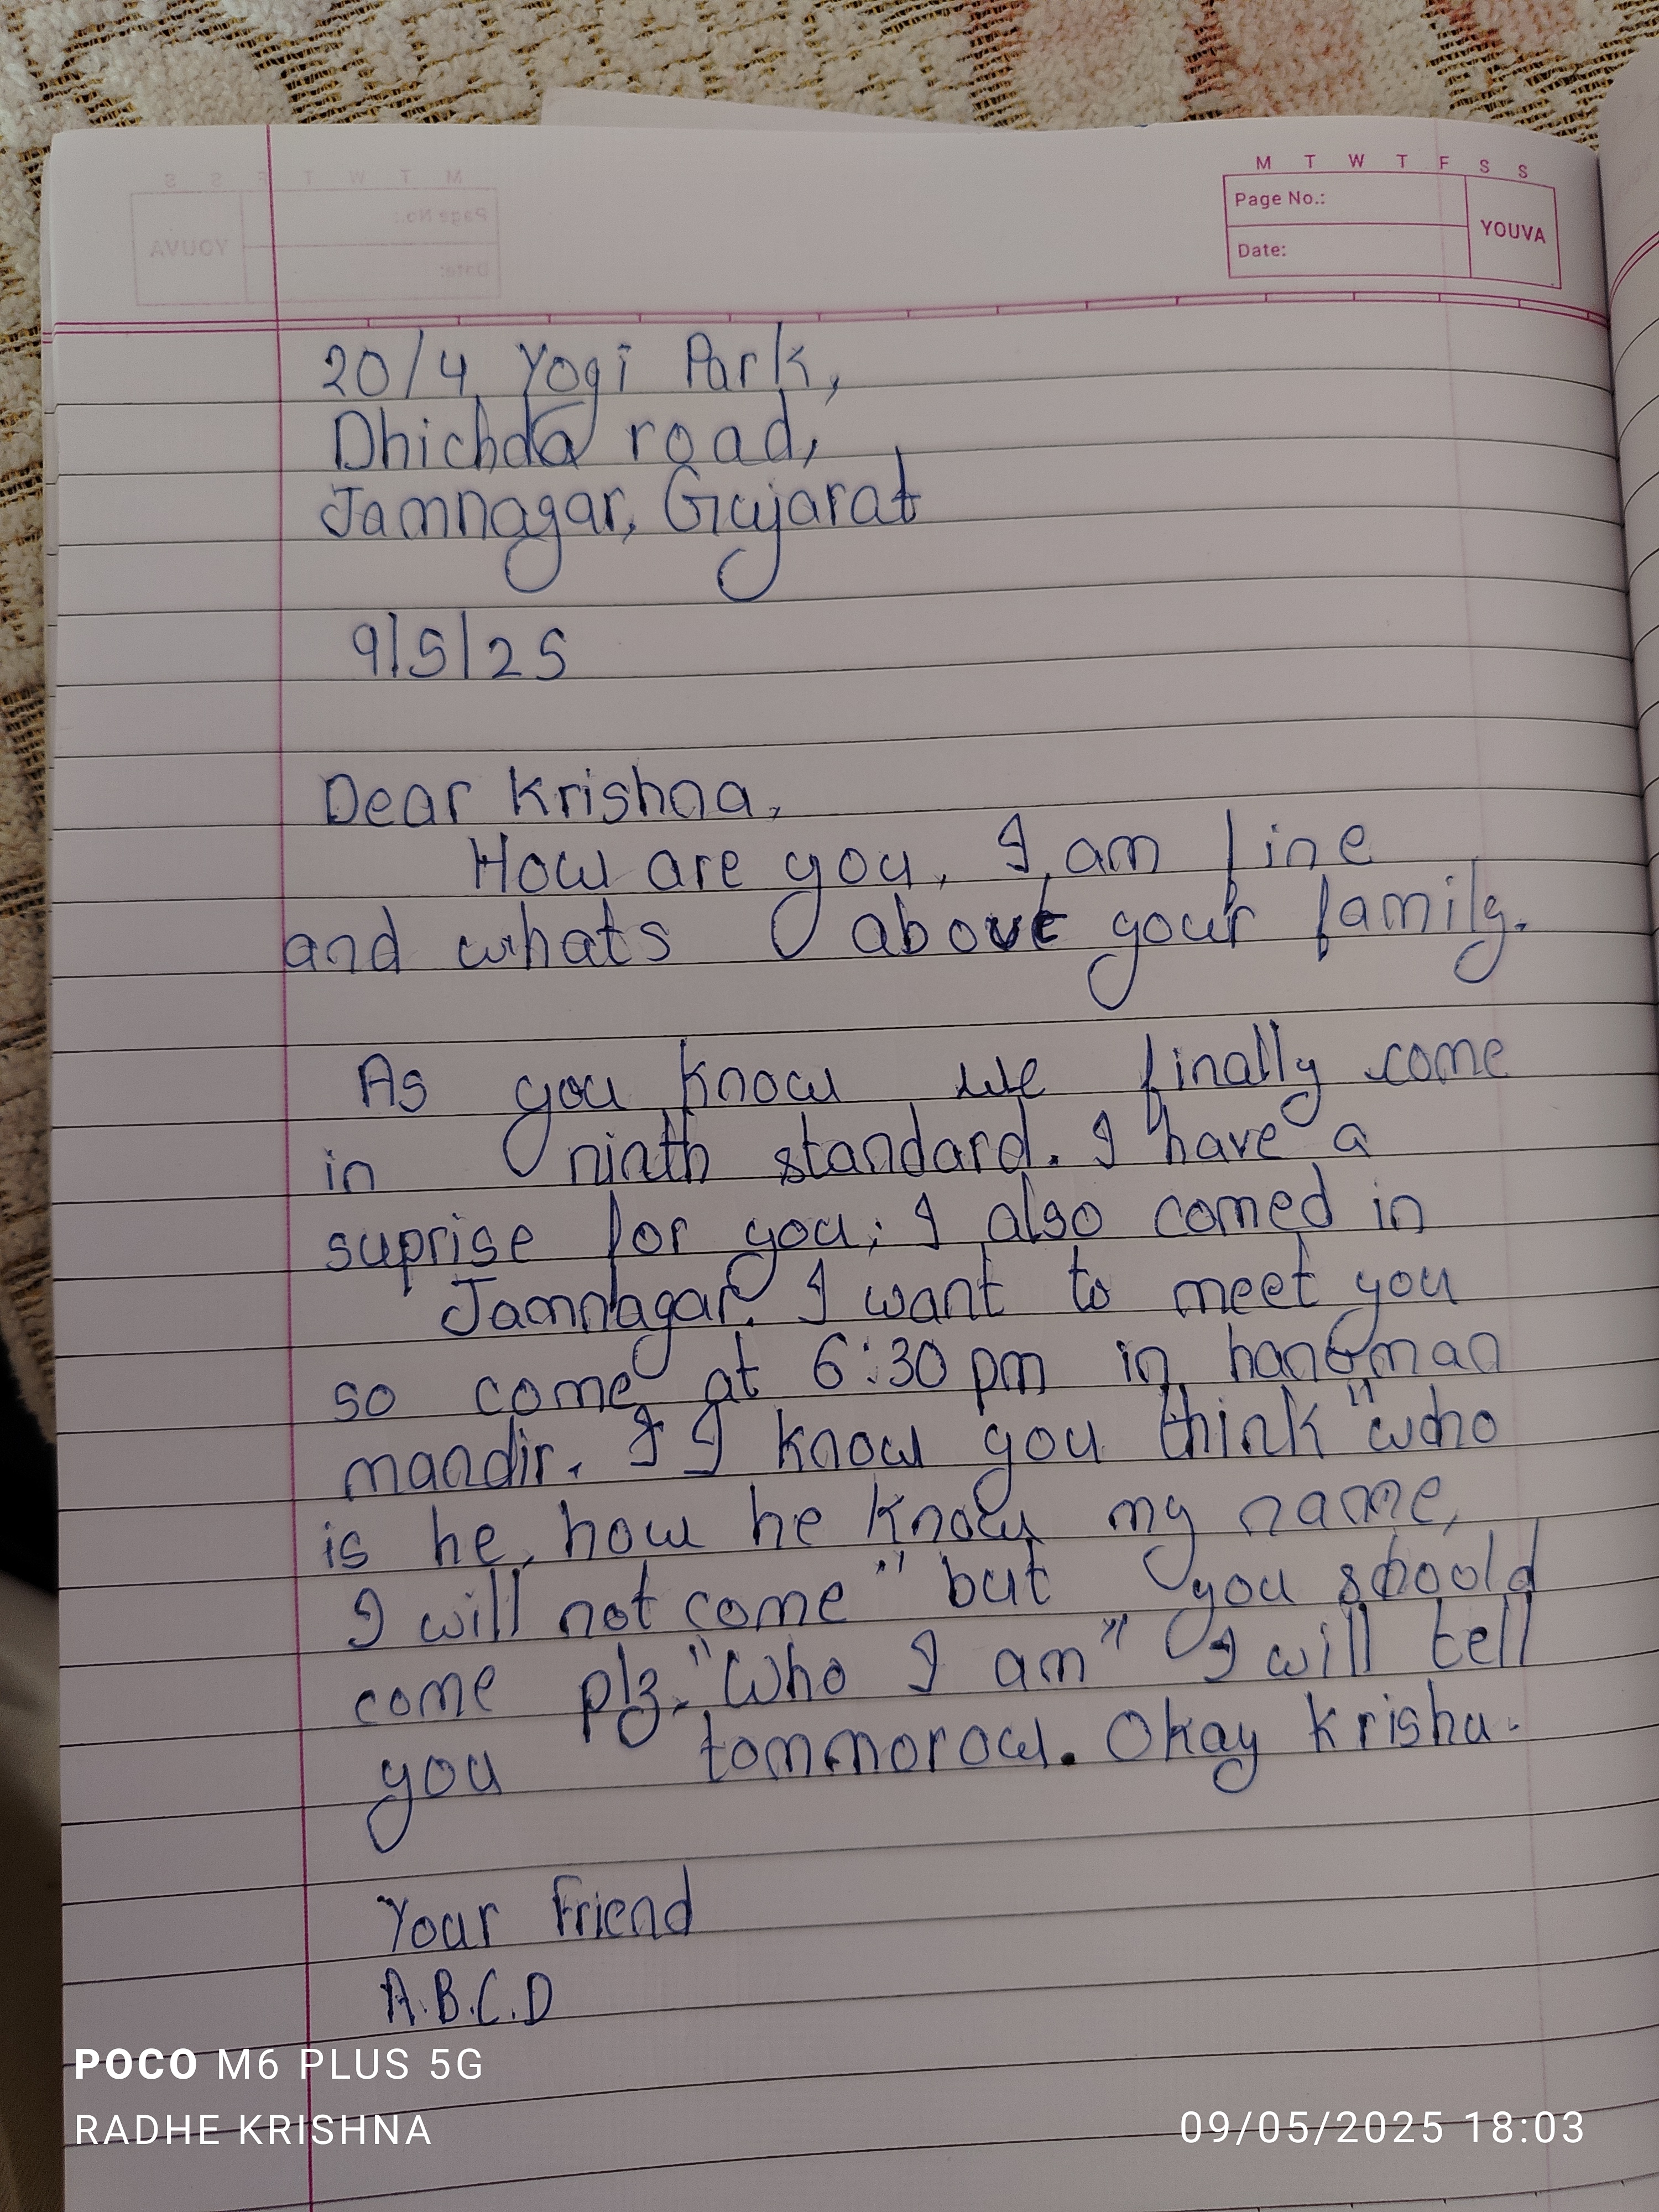 M T W T F S S
Page No.:
YOUVA
Date:
20/4 Yogi Park,
Dhichda road,
Jamnagar, Gujarat
9/5/25
Dear Krishna,
How are you, I am fine
and whats about your family.
As you know we finally come
in ninth standard. I have a
suprise for you; I also comed in
Jamnagar. I want to meet you
so come at 6:30 pm in hanuman
mandir. I I know you think "who
is he, how he know my name,
I will not come" but you shoold
come plz. "Who I am" I will tell
you tommorow. Okay Krisha.
Your Friend
A.B.C.D
POCO M6 PLUS 5G
RADHE KRISHNA
09/05/2025 18:03